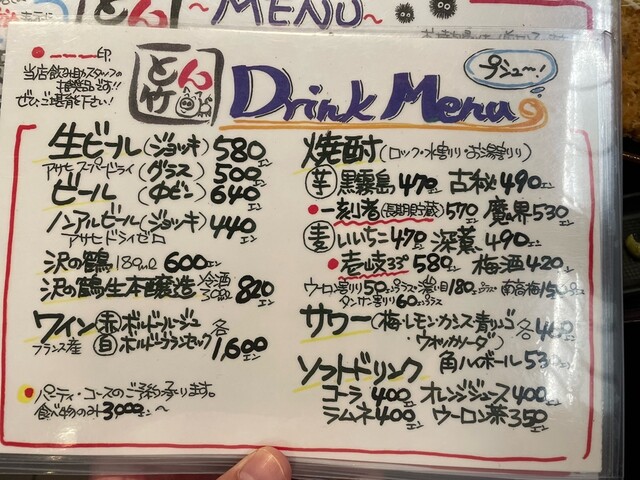 MENU
●ーーー印
当店飲み助スタッフの
お奨め品です!!
ぜひご堪能下さい!
とん竹
Drink Menu
プシューー!
生ビール(ジョッキ)580エン
アサヒスーパードライ (グラス)500エン
ビール (中ビン)640エン
ノンアルビール(ジョッキ)440エン
アサヒドライゼロ
沢の鶴180ml 600エン
沢の鶴生本醸造 冷酒300ml 820エン
ワイン 赤 ボルドールージュ 各
フランス産 白 ボルドーブランセック 1,600エン
●パーティ・コースのご予約承ります。
食べ物のみ3,000エン〜
焼酎(ロック・水割り・お湯割り)
芋 黒霧島470エン 古秘490エン
●一刻者(長期貯蔵)570エン 魔界530エン
麦 いいちこ470エン 深薫490エン
●壱岐33° 580エン 梅酒420エン
ウーロン割り50エンプラス・濃い目180エンプラス・南高梅150プラス
タンサン割り60エンプラス
サワー(梅・レモン・カシス・青リンゴ 各460エン
・ウォッカソーダ)
角ハイボール530エン
ソフトドリンク
コーラ400エン オレンジジュース400エン
ラムネ400エン ウーロン茶350エン